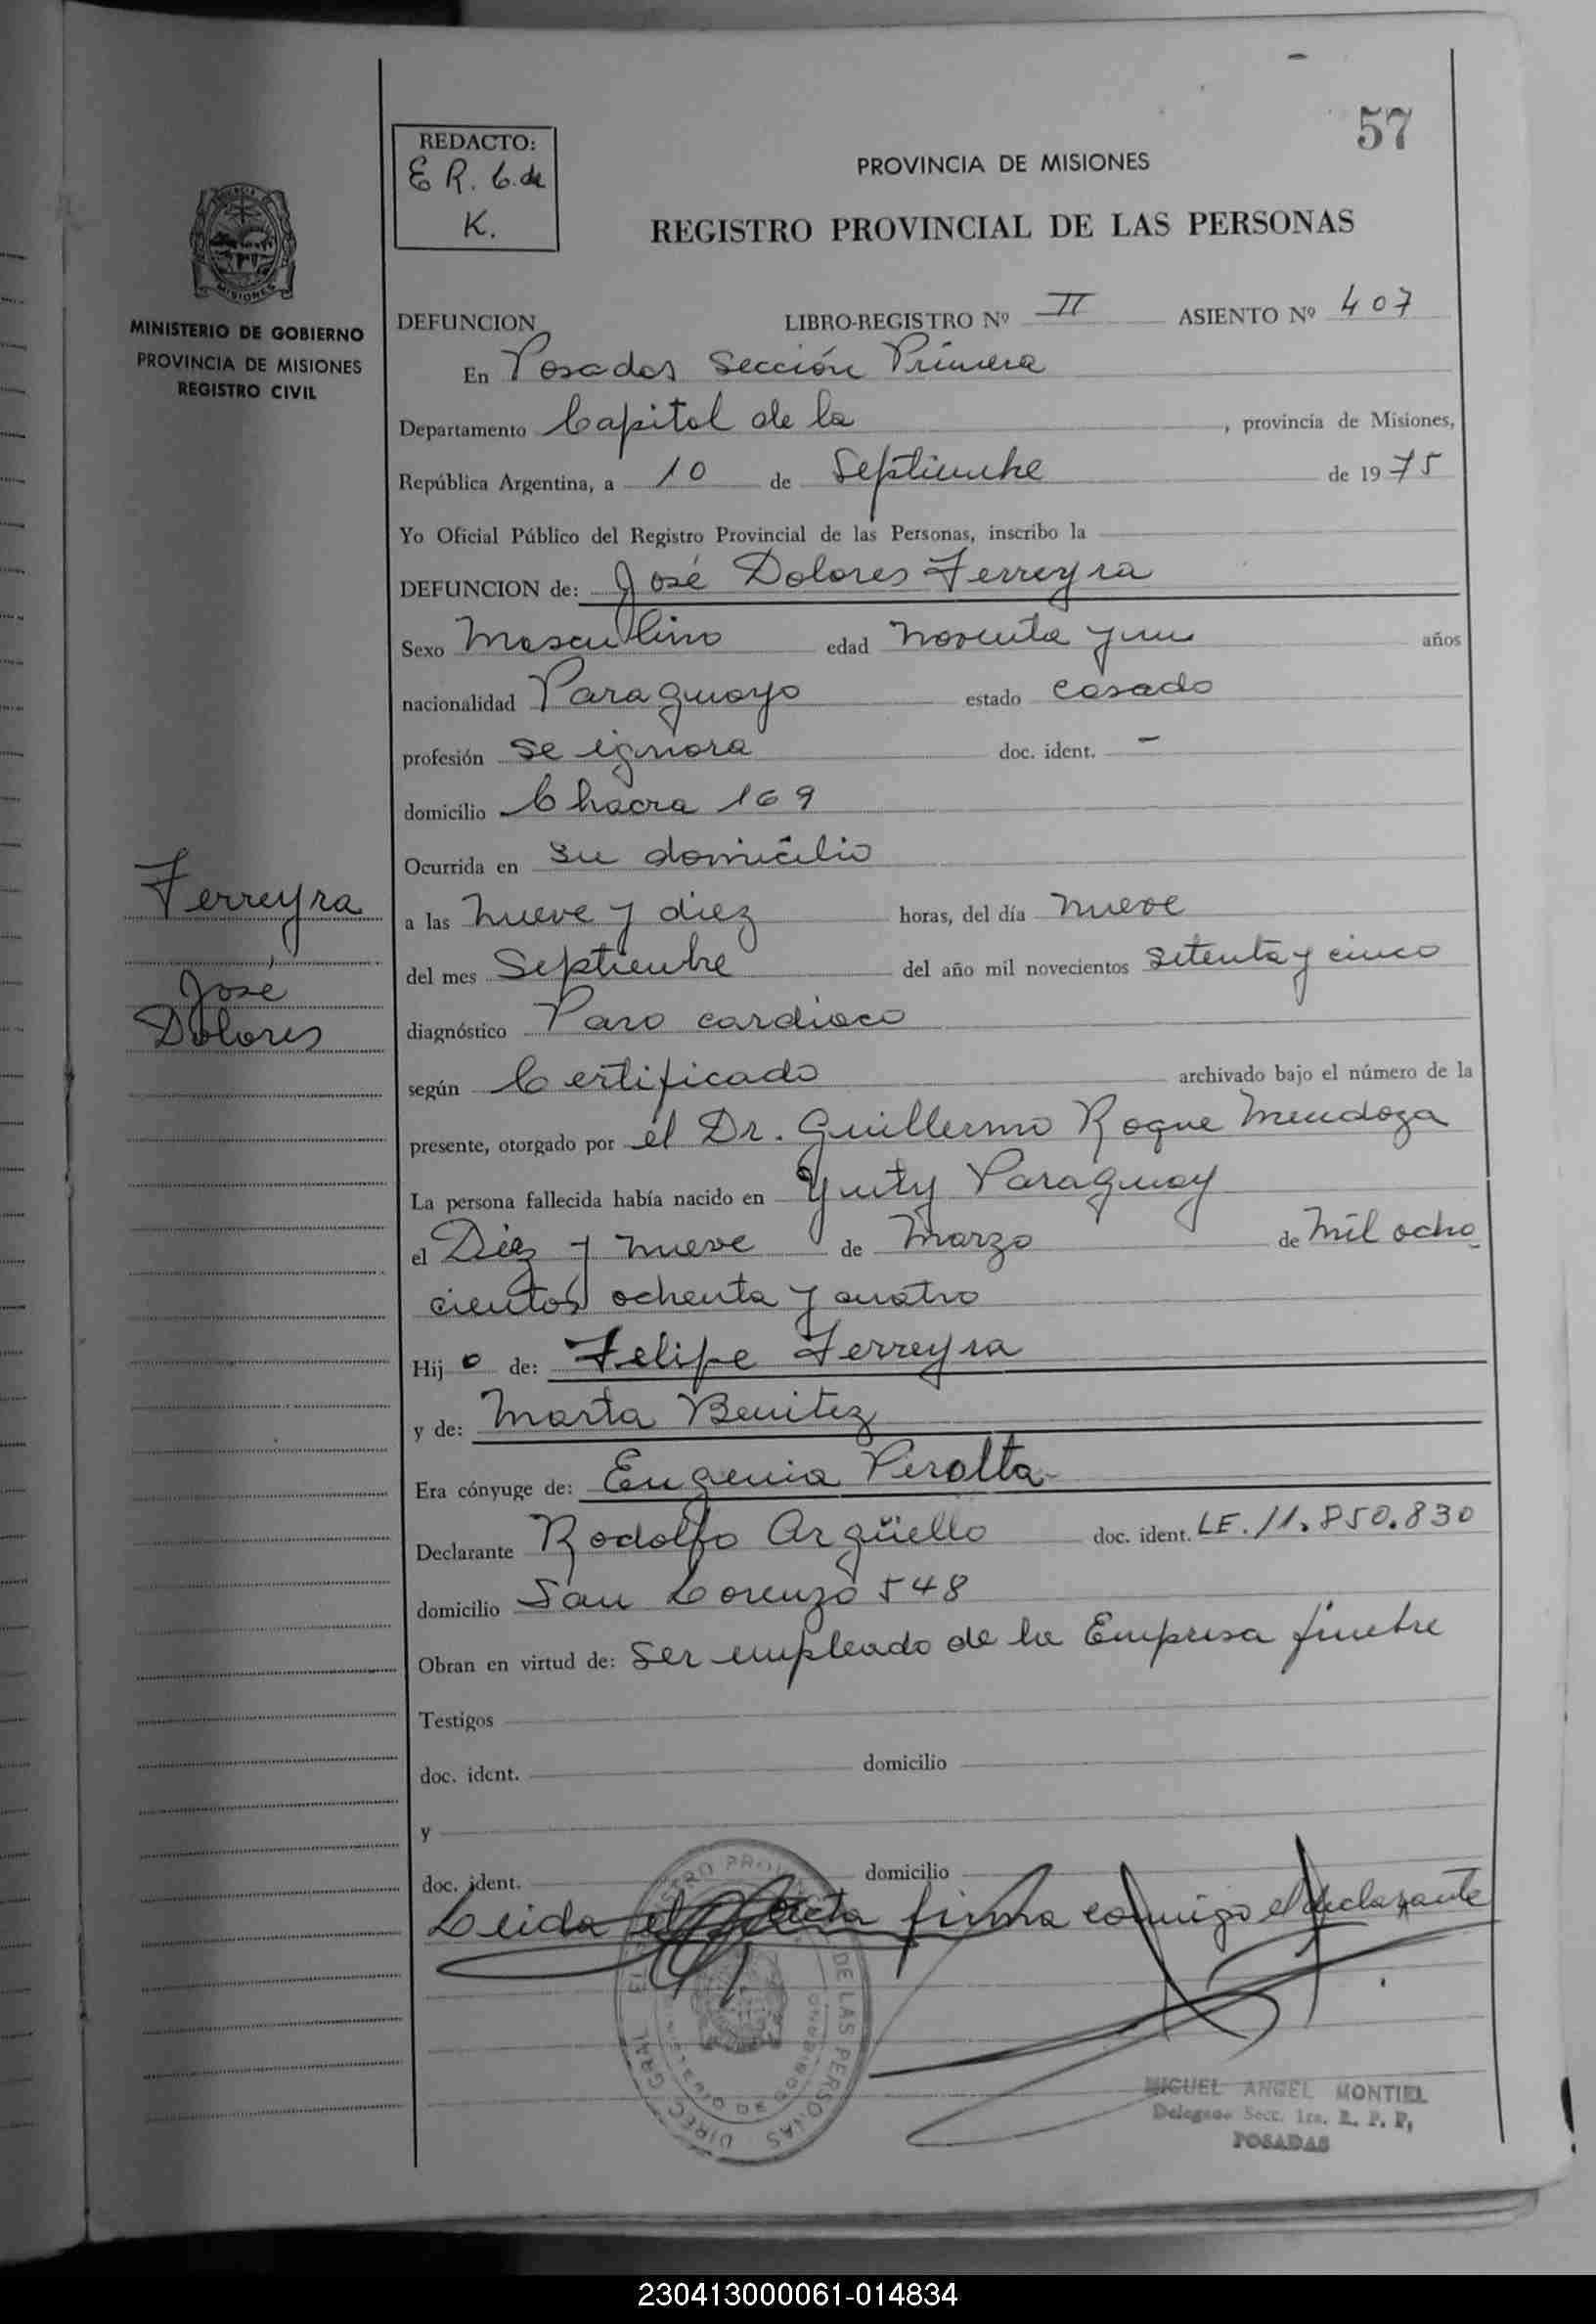 57
REDACTO:
E R. C. de
K.
PROVINCIA DE MISIONES
REGISTRO PROVINCIAL DE LAS PERSONAS
MISIONES
MINISTERIO DE GOBIERNO
PROVINCIA DE MISIONES
REGISTRO CIVIL
DEFUNCION LIBRO-REGISTRO Nº II ASIENTO Nº 407
En Posadas Sección Primera
Departamento Capital de la , provincia de Misiones,
República Argentina, a 10 de Septiembre de 1975
Yo Oficial Público del Registro Provincial de las Personas, inscribo la
DEFUNCION de: José Dolores Ferreyra
Sexo Masculino edad noventa y un años
nacionalidad Paraguayo estado casado
profesión se ignora doc. ident. -
domicilio Chacra 169
Ocurrida en su domicilio
Ferreyra
José
Dolores
a las nueve y diez horas, del día nueve
del mes Septiembre del año mil novecientos setenta y cinco
diagnóstico Paro cardiaco
según Certificado archivado bajo el número de la
presente, otorgado por el Dr. Guillermo Roque Mendoza
La persona fallecida había nacido en Yuty Paraguay
el Diez y nueve de Marzo de mil ocho
cientos ochenta y cuatro
Hijo de: Felipe Ferreyra
y de: Marta Benitez
Era cónyuge de: Eugenia Peralta
Declarante Rodolfo Argüello doc. ident. LE. 11.850.830
domicilio San Lorenzo 548
Obran en virtud de: Ser empleado de la Empresa fúnebre
Testigos
doc. ident. domicilio
y
doc. ident. domicilio
Leida el acta firma conmigo el declarante
DE LAS PERSONAS
MIGUEL ANGEL MONTIEL
Delegado Secc. 1ra. R. P. P.
POSADAS
230413000061-014834